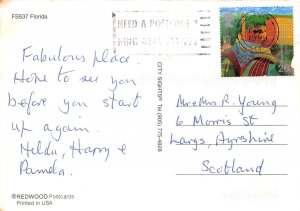 FS537 Florida
NEED A POSTCODE?
Fabulous place.
Hope to see you
before you start
up again.
Hilda, Harry &
Pamela.
CITY SIGHTS® Tel. (305)
Mr & Mrs R. Young
6 Morris St
Largs, Ayrshire
Scotland
® REDWOOD Postcards
Printed in USA